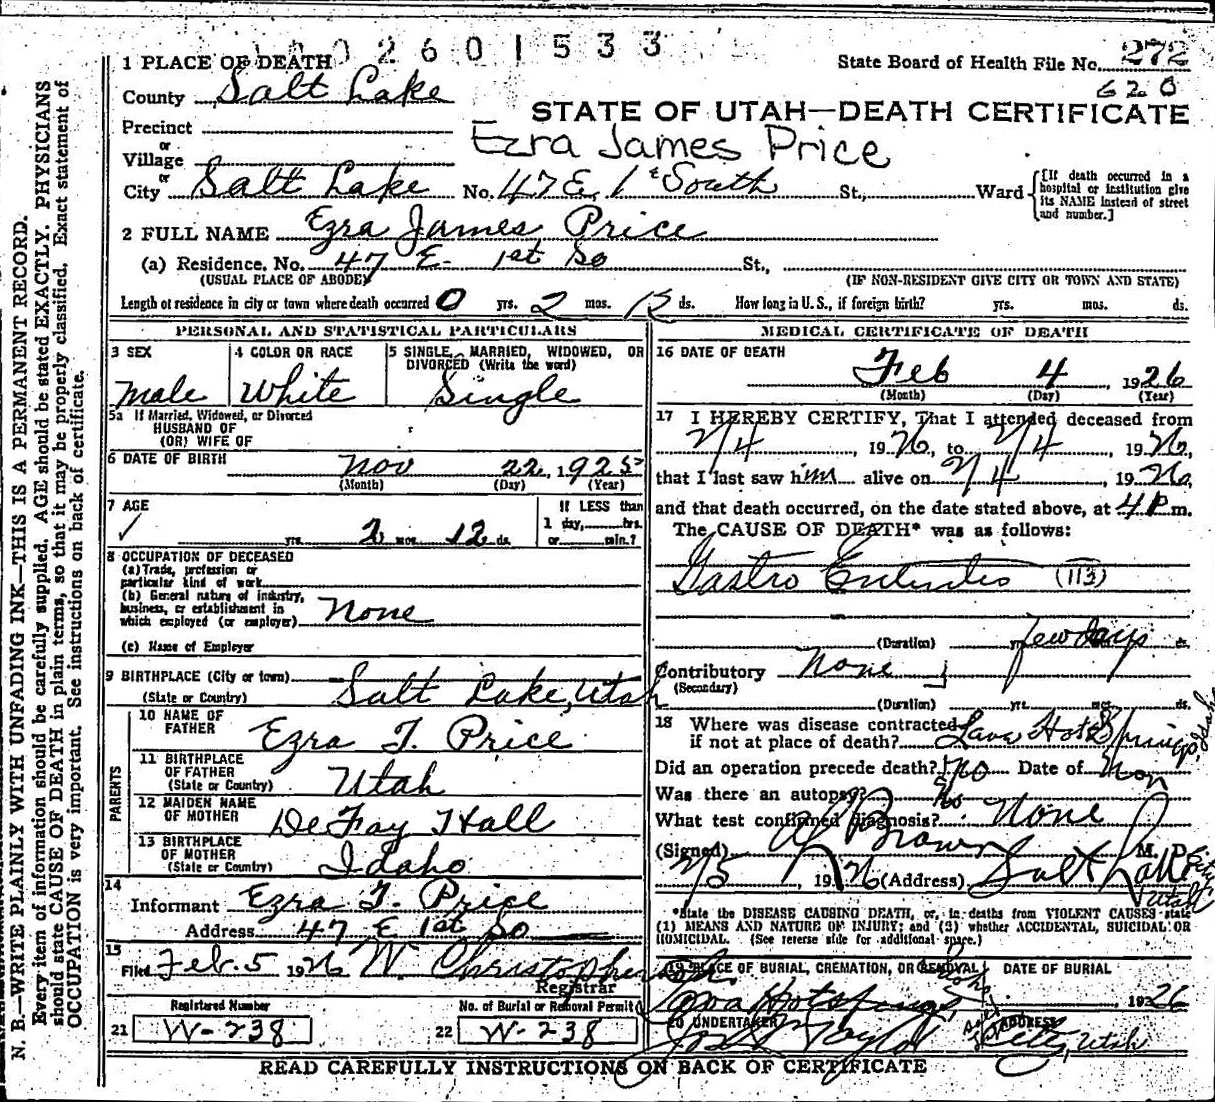 2601533
1 PLACE OF DEATH
State Board of Health File No. 272
620
County Salt Lake
STATE OF UTAH—DEATH CERTIFICATE
Precinct
or
Village
Ezra James Price
or
City Salt Lake No. 47 E, 1st South St., Ward {[If death occurred in a hospital or institution give its NAME instead of street and number.]
2 FULL NAME Ezra James Price
(a) Residence. No. 47 E- 1st So St.,
(USUAL PLACE OF ABODE) (IF NON-RESIDENT GIVE CITY OR TOWN AND STATE)
Length of residence in city or town where death occurred 0 yrs. 2 mos. 12 ds. How long in U. S., if foreign birth? yrs. mos. ds.
PERSONAL AND STATISTICAL PARTICULARS
3 SEX
Male
4 COLOR OR RACE
White
5 SINGLE, MARRIED, WIDOWED, OR DIVORCED (Write the word)
Single
5a If Married, Widowed, or Divorced
HUSBAND OF
(OR) WIFE OF
6 DATE OF BIRTH Nov 22, 1925
(Month) (Day) (Year)
7 AGE
yrs. 2 mos. 12 ds.
If LESS than
1 day, hrs.
or min.?
8 OCCUPATION OF DECEASED
(a) Trade, profession or
particular kind of work
(b) General nature of industry,
business, or establishment in
which employed (or employer) None
(c) Name of Employer
9 BIRTHPLACE (City or town)
(State or Country) Salt Lake, Utah
PARENTS
10 NAME OF
FATHER Ezra T. Price
11 BIRTHPLACE
OF FATHER
(State or Country) Utah
12 MAIDEN NAME
OF MOTHER DeFay Hall
13 BIRTHPLACE
OF MOTHER
(State or Country) Idaho
14
Informant Ezra T. Price
Address 47 E 1st So
15
Filed Feb. 5 1926 W. Christopherson
Registrar
Registered Number No. of Burial or Removal Permit
21 W-238 22 W-238
MEDICAL CERTIFICATE OF DEATH
16 DATE OF DEATH
Feb 4, 1926
(Month) (Day) (Year)
17 I HEREBY CERTIFY, That I attended deceased from
2/4, 1926, to 2/4 1926,
that I last saw him alive on 2/4, 1926,
and that death occurred, on the date stated above, at 4 P m.
The CAUSE OF DEATH* was as follows:
Gastro Enteritis (113)
(Duration) yrs. few days ds.
Contributory None
(Secondary)
(Duration) yrs. mos. ds.
18 Where was disease contracted
if not at place of death? Lava Hot Springs, Idah
Did an operation precede death? No Date of Non
Was there an autopsy? No
What test confirmed diagnosis? None
(Signed) Brown M. D.
2/5, 1926 (Address) Salt Lake City Utah
*State the DISEASE CAUSING DEATH, or, in deaths from VIOLENT CAUSES state
(1) MEANS AND NATURE OF INJURY; and (2) whether ACCIDENTAL, SUICIDAL OR
HOMICIDAL. (See reverse side for additional space.)
19 PLACE OF BURIAL, CREMATION, OR REMOVAL DATE OF BURIAL
Lava Hot Springs, Idaho 1926
20 UNDERTAKER ADDRESS
Taylor Salt Lake City, Utah
READ CAREFULLY INSTRUCTIONS ON BACK OF CERTIFICATE
N. B.—WRITE PLAINLY WITH UNFADING INK—THIS IS A PERMANENT RECORD.
Every item of information should be carefully supplied. AGE should be stated EXACTLY. PHYSICIANS
should state CAUSE OF DEATH in plain terms, so that it may be properly classified. Exact statement of
OCCUPATION is very important. See instructions on back of certificate.